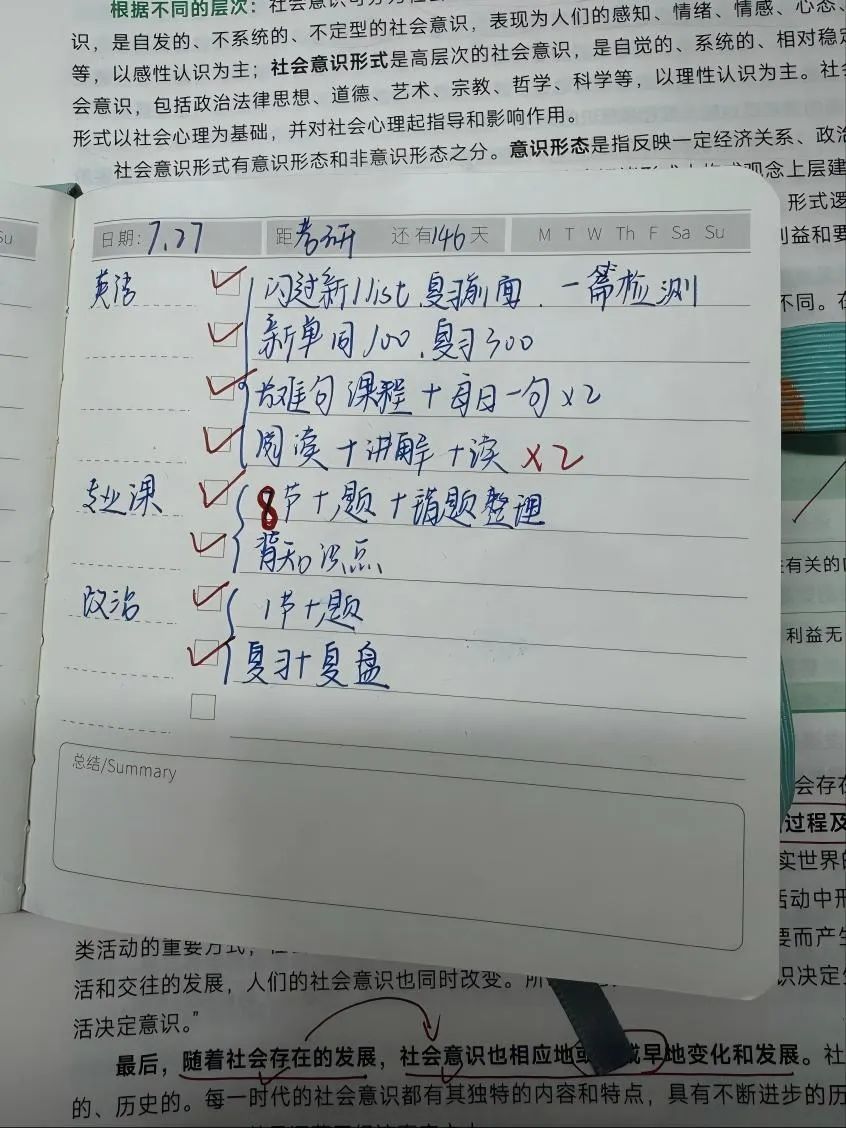 根据不同的层次：社会意识可分为社会
识，是自发的、不系统的、不定型的社会意识，表现为人们的感知、情绪、情感、心态、
等，以感性认识为主；社会意识形式是高层次的社会意识，是自觉的、系统的、相对稳定
会意识，包括政治法律思想、道德、艺术、宗教、哲学、科学等，以理性认识为主。社会
形式以社会心理为基础，并对社会心理起指导和影响作用。
社会意识形式有意识形态和非意识形态之分。意识形态是指反映一定经济关系、政治
观念上层建
形式逻
利益和要
不同。在
Su
日期：7.27 距考研 还有146天 M T W Th F Sa Su
英语 闪过新1list.复习前面.一篇检测
新单词100.复习300
长难句课程+每日一句×2
阅读+讲解+读×2
专业课 8节+题+错题整理
背知识点
政治 1节+题
复习+复盘
总结/Summary
有关的
利益无
会存在
过程及
实世界的
活动中形
类活动的重要方式，
要而产生
活和交往的发展，人们的社会意识也同时改变。所
识决定生
活决定意识。”
最后，随着社会存在的发展，社会意识也相应地或 或早地变化和发展。社
的、历史的。每一时代的社会意识都有其独特的内容和特点，具有不断进步的历